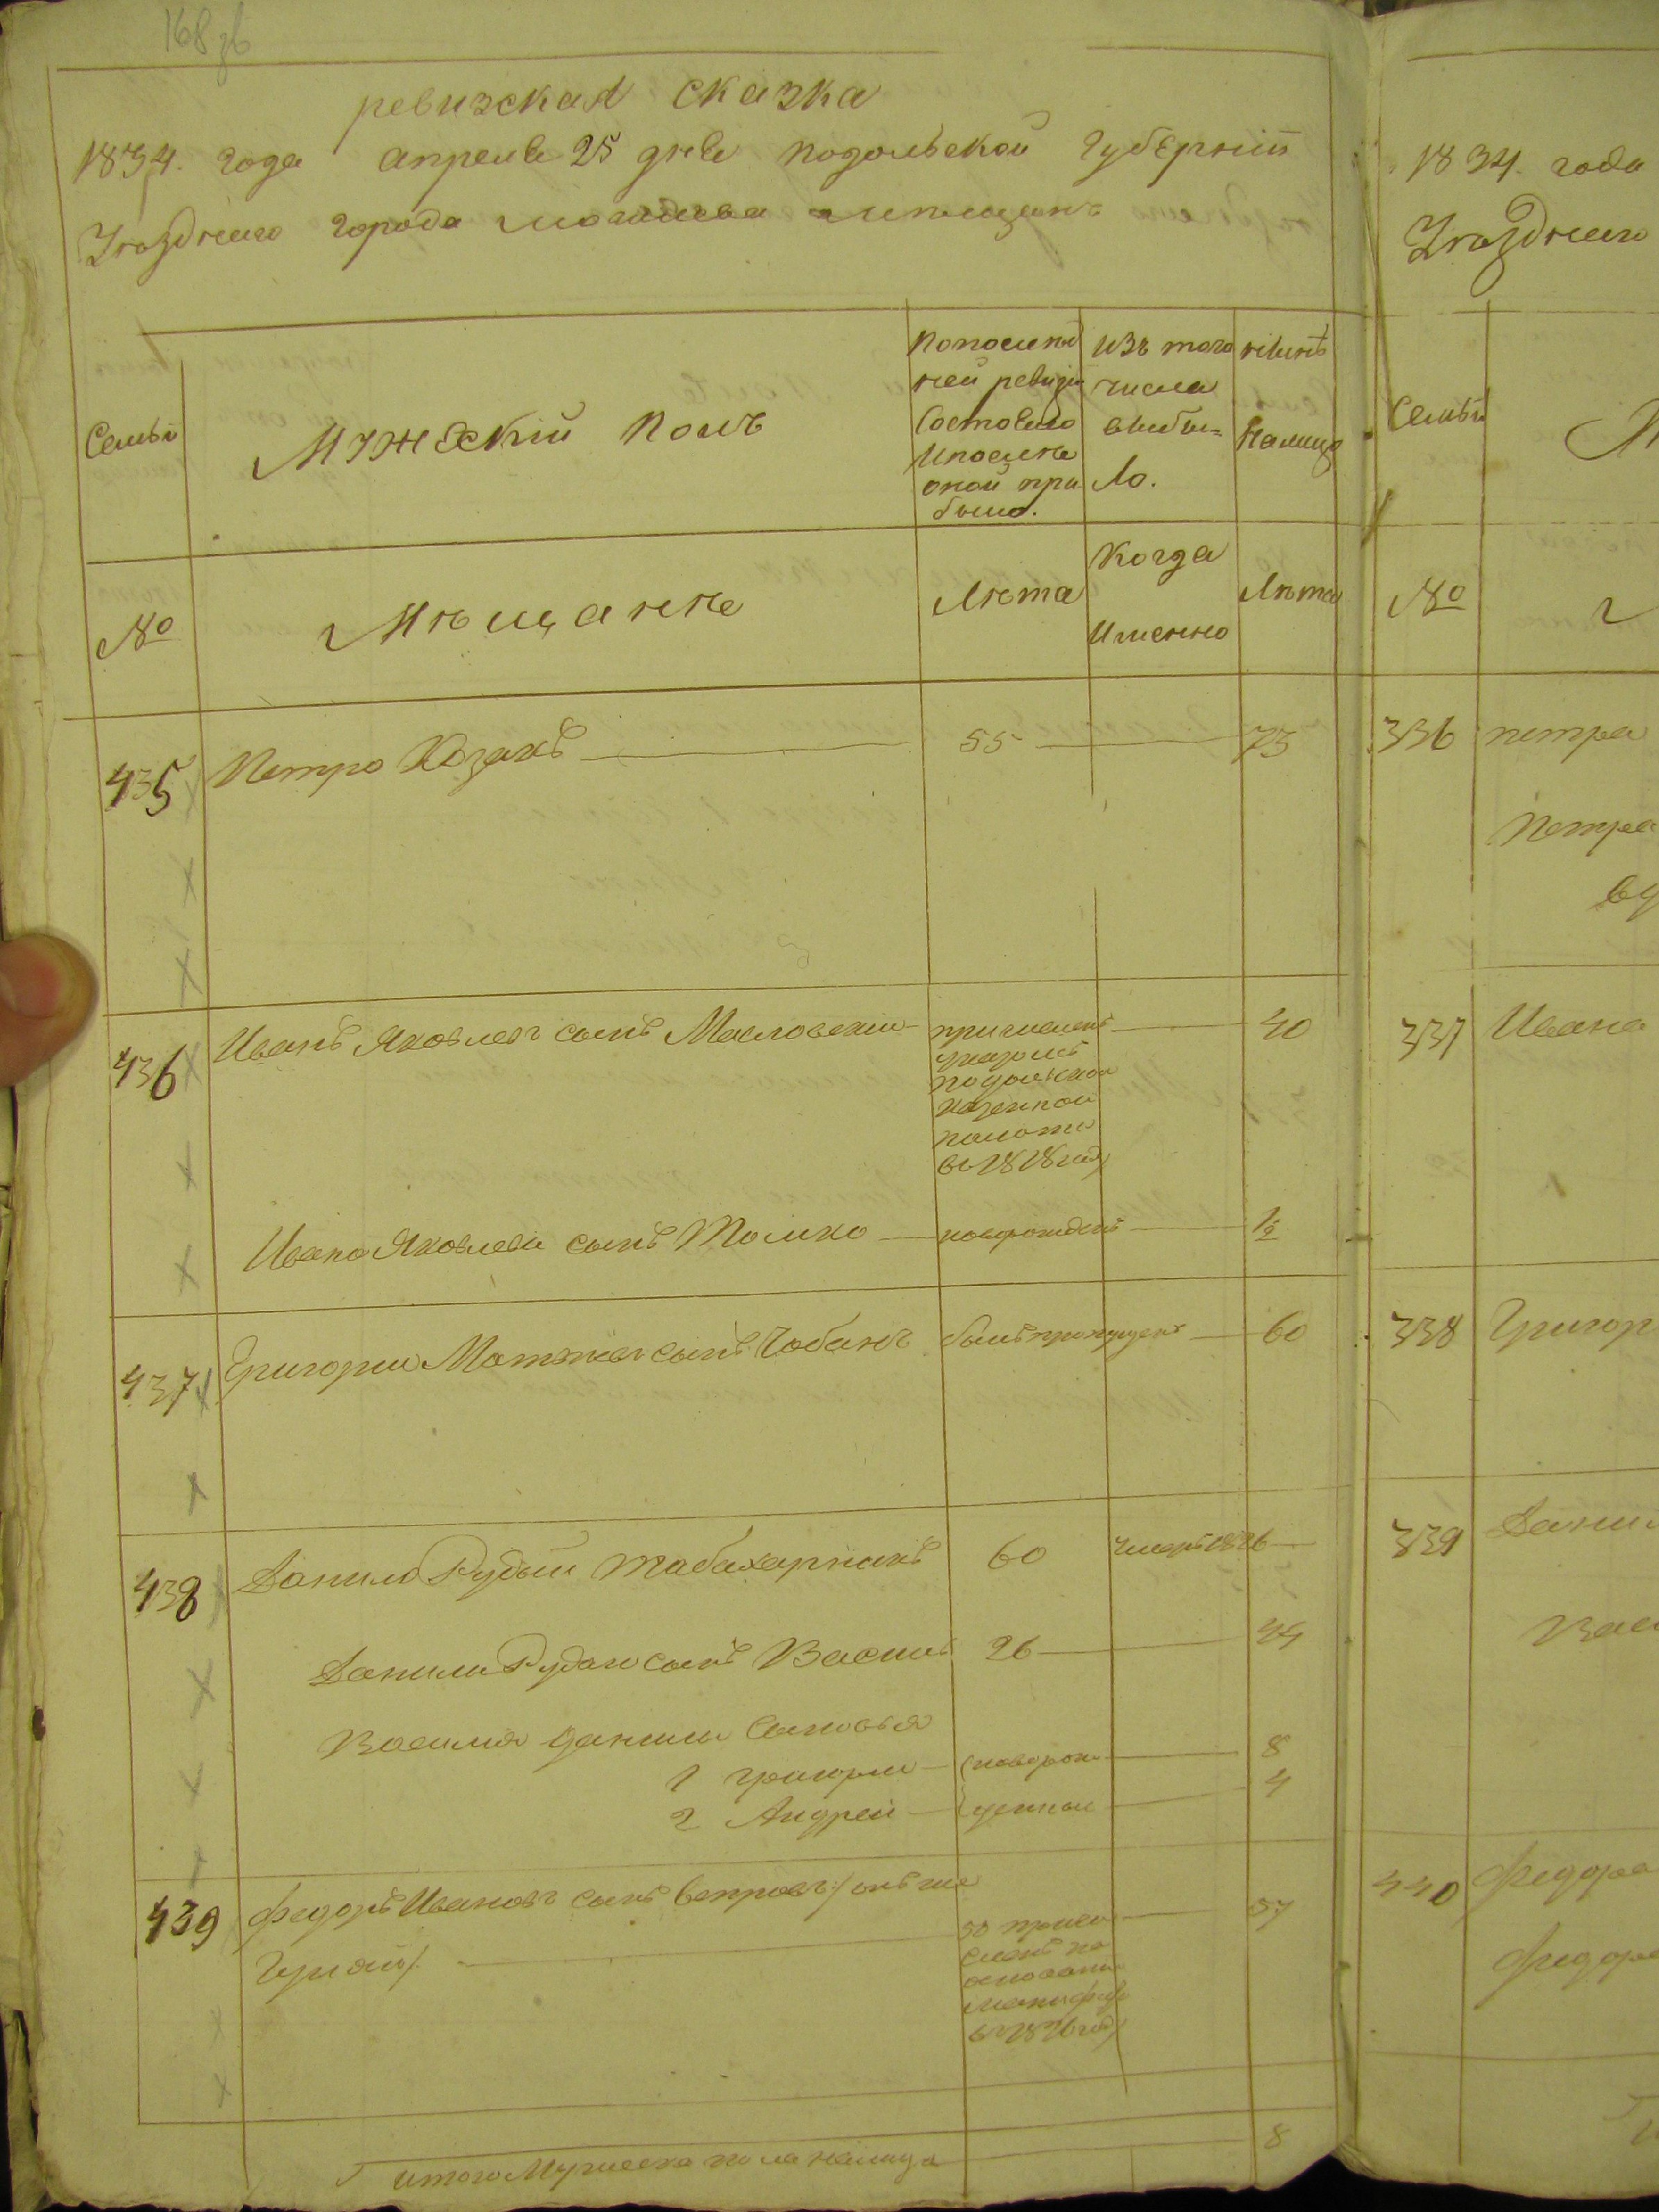 168 зв
ревизская сказка
1834. года апреля 25 дня подольской Губернии
Уезднаго города могилева мещанъ
Семьи
Мужеский полъ
По последней ревизии состояло и после оной прибыло.
Изъ того числа выбыло.
ныне на лицо
№
Мещанне
Лета
Когда именно
Лета
435 Петро Козакъ 55 73
436 Иванъ Яковлевъ сынъ Масловский причисленъ указомъ подольской казенной палаты въ 1828 году 40
Ивана Яковлева сынъ Томко новорожденъ ½
437 Григории Матжеевъ сынъ Чобанъ былъ пропущенъ 60
438 Данило Рудый табахарникъ 60 умеръ 1826
Данили Рудаго сынъ Василь 26 44
Василия Данили сыновья
1 Григории новорож 8
2 Андрей денныи 4
439 Федоръ Ивановъ сынъ Вепровъ /: онъ же
50 причисленъ по основании манифеста 37
итого Мужеска пола налицо 8
1834. года
Уезднаго
Семьи
№
336 петра
Петра
337 Ивана
338 Григор
339 Данил
Васи
340 Федора
Федора